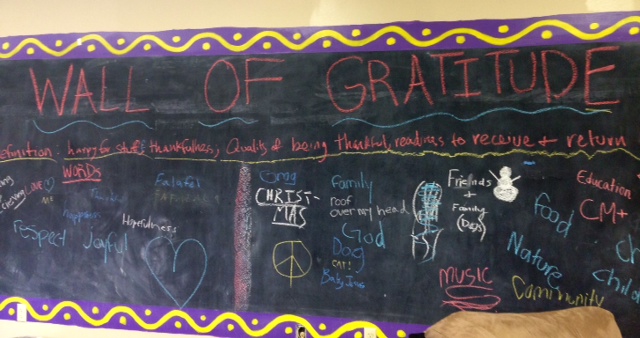 WALL OF GRATITUDE
efinition: hungry for stuff, thankfulness, Quality of being thankful, readiness to receive + return
WORDS
LOVE
ME
Family
happiness
Hopefulness
Respect
Joyful
Falafel
CHRIST-
MAS
Family
roof
over my head
God
Dog
CAT!
Baby Jesus
Friends
+
Family
(Dogs)
MUSIC
Food
Nature
Community
Education
CM+
Ch
Child